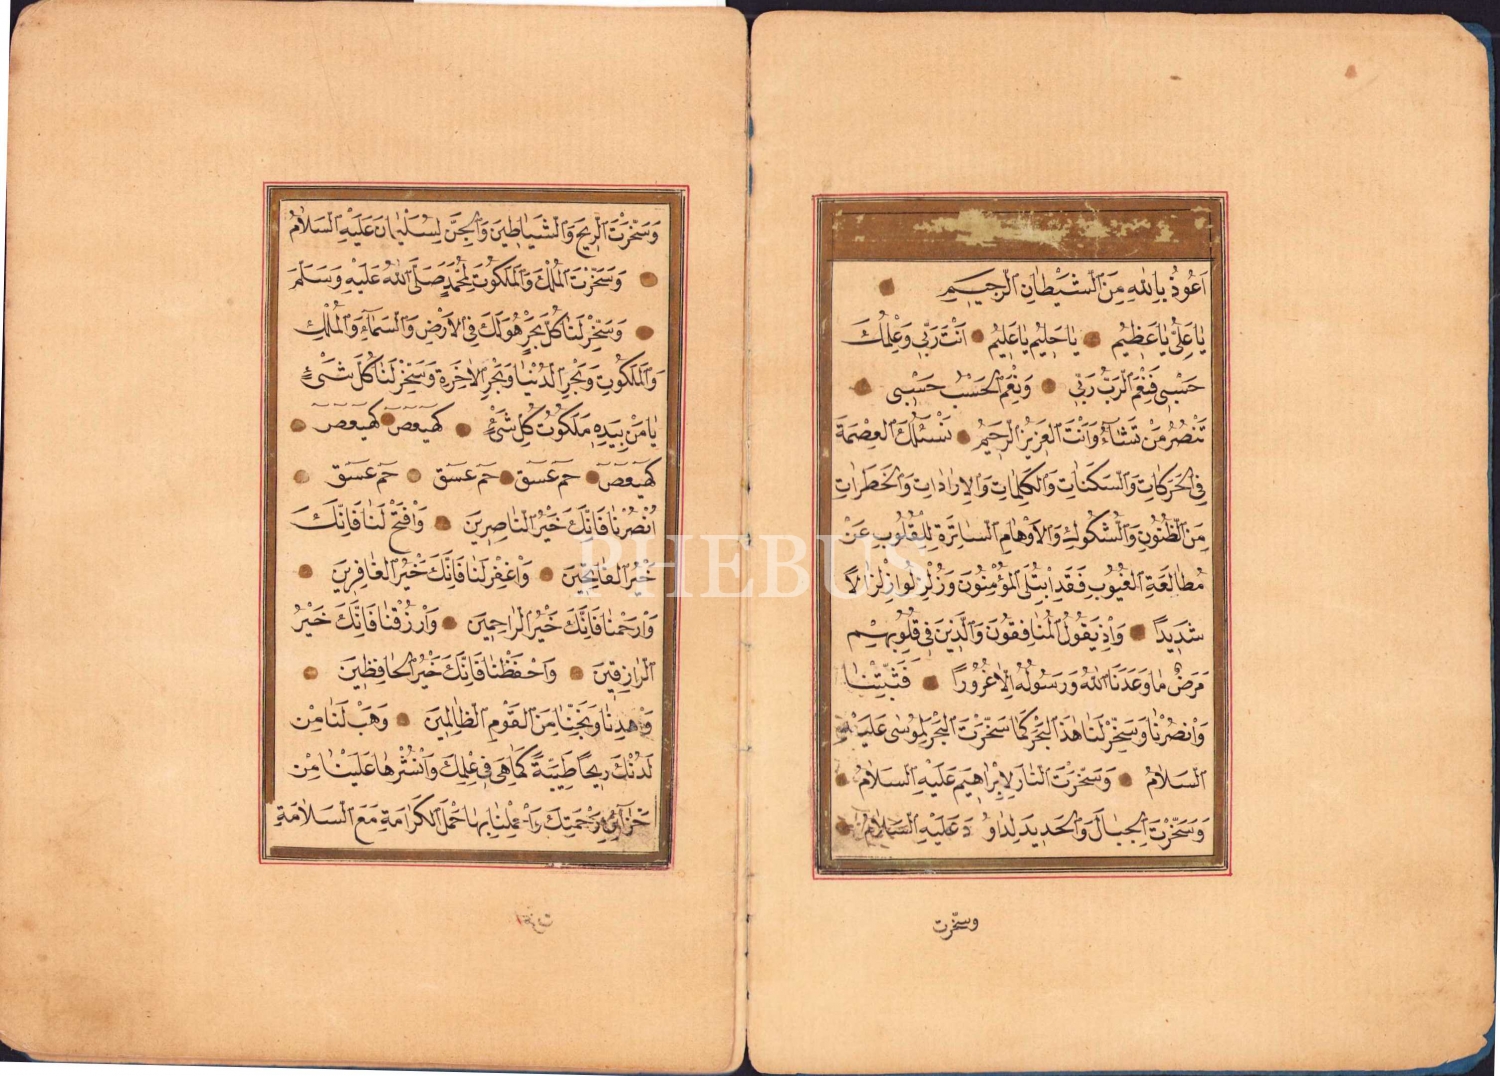 اَعُوذُ بِاللهِ مِنَ الشَّيْطَانِ الرَّجِيمِ
يَا عَلِىُّ يَا عَظِيمُ يَا حَلِيمُ يَا عَلِيمُ اَنْتَ رَبِّى وَعِلْمُكَ
حَسْبِى فَنِعْمَ الرَّبُّ رَبِّى وَنِعْمَ الْحَسْبُ حَسْبِى
تَنْصُرُ مَنْ تَشَاءُ وَاَنْتَ الْعَزِيزُ الرَّحِيمُ نَسْئَلُكَ الْعِصْمَةَ
فِى الْحَرَكَاتِ وَالسَّكَنَاتِ وَالْكَلِمَاتِ وَالْاِرَادَاتِ وَالْخَطَرَاتِ
مِنَ الظُّنُونِ وَالشُّكُوكِ وَالْاَوْهَامِ السَّاتِرَةِ لِلْقُلُوبِ عَنْ
مُطَالَعَةِ الْغُيُوبِ فَقَدِ ابْتُلِىَ الْمُؤْمِنُونَ وَزُلْزِلُوا زِلْزَالًا
شَدِيدًا وَاِذْ يَقُولُ الْمُنَافِقُونَ وَالَّذِينَ فِى قُلُوبِهِمْ
مَرَضٌ مَا وَعَدَنَا اللهُ وَرَسُولُهُ اِلَّا غُرُورًا فَثَبِّتْنَا
وَانْصُرْنَا وَسَخِّرْ لَنَا هٰذَا الْبَحْرَ كَمَا سَخَّرْتَ الْبَحْرَ لِمُوسٰى عَلَيْهِ
السَّلَامُ وَسَخَّرْتَ النَّارَ لِاِبْرَاهِيمَ عَلَيْهِ السَّلَامُ
وَسَخَّرْتَ الْجِبَالَ وَالْحَدِيدَ لِدَاوُدَ عَلَيْهِ السَّلَامُ
وسخّرت
وَسَخَّرْتَ الرِّيحَ وَالشَّيَاطِينَ وَالْجِنَّ لِسُلَيْمَانَ عَلَيْهِ السَّلَامُ
وَسَخَّرْتَ الْمُلْكَ وَالْمَلَكُوتَ لِمُحَمَّدٍ صَلَّى اللهُ عَلَيْهِ وَسَلَّمَ
وَسَخِّرْ لَنَا كُلَّ بَحْرٍ هُوَ لَكَ فِى الْاَرْضِ وَالسَّمَاءِ وَالْمُلْكِ
وَالْمَلَكُوتِ وَبَحْرِ الدُّنْيَا وَبَحْرِ الْاٰخِرَةِ وَسَخِّرْ لَنَا كُلَّ شَىْءٍ
يَا مَنْ بِيَدِهِ مَلَكُوتُ كُلِّ شَىْءٍ كهيعص كهيعص
كهيعص حم عسق حم عسق حم عسق
اُنْصُرْنَا فَاِنَّكَ خَيْرُ النَّاصِرِينَ وَافْتَحْ لَنَا فَاِنَّكَ
خَيْرُ الْفَاتِحِينَ وَاغْفِرْ لَنَا فَاِنَّكَ خَيْرُ الْغَافِرِينَ
وَارْحَمْنَا فَاِنَّكَ خَيْرُ الرَّاحِمِينَ وَارْزُقْنَا فَاِنَّكَ خَيْرُ
الرَّازِقِينَ وَاحْفَظْنَا فَاِنَّكَ خَيْرُ الْحَافِظِينَ
وَاهْدِنَا وَنَجِّنَا مِنَ الْقَوْمِ الظَّالِمِينَ وَهَبْ لَنَا مِنْ
لَدُنْكَ رِيحًا طَيِّبَةً كَمَا هِىَ فِى عِلْمِكَ وَانْشُرْهَا عَلَيْنَا مِنْ
خَزَآئِنِ رَحْمَتِكَ وَاحْمِلْنَا بِهَا حَمْلَ الْكَرَامَةِ مَعَ السَّلَامَةِ
PHEBUS